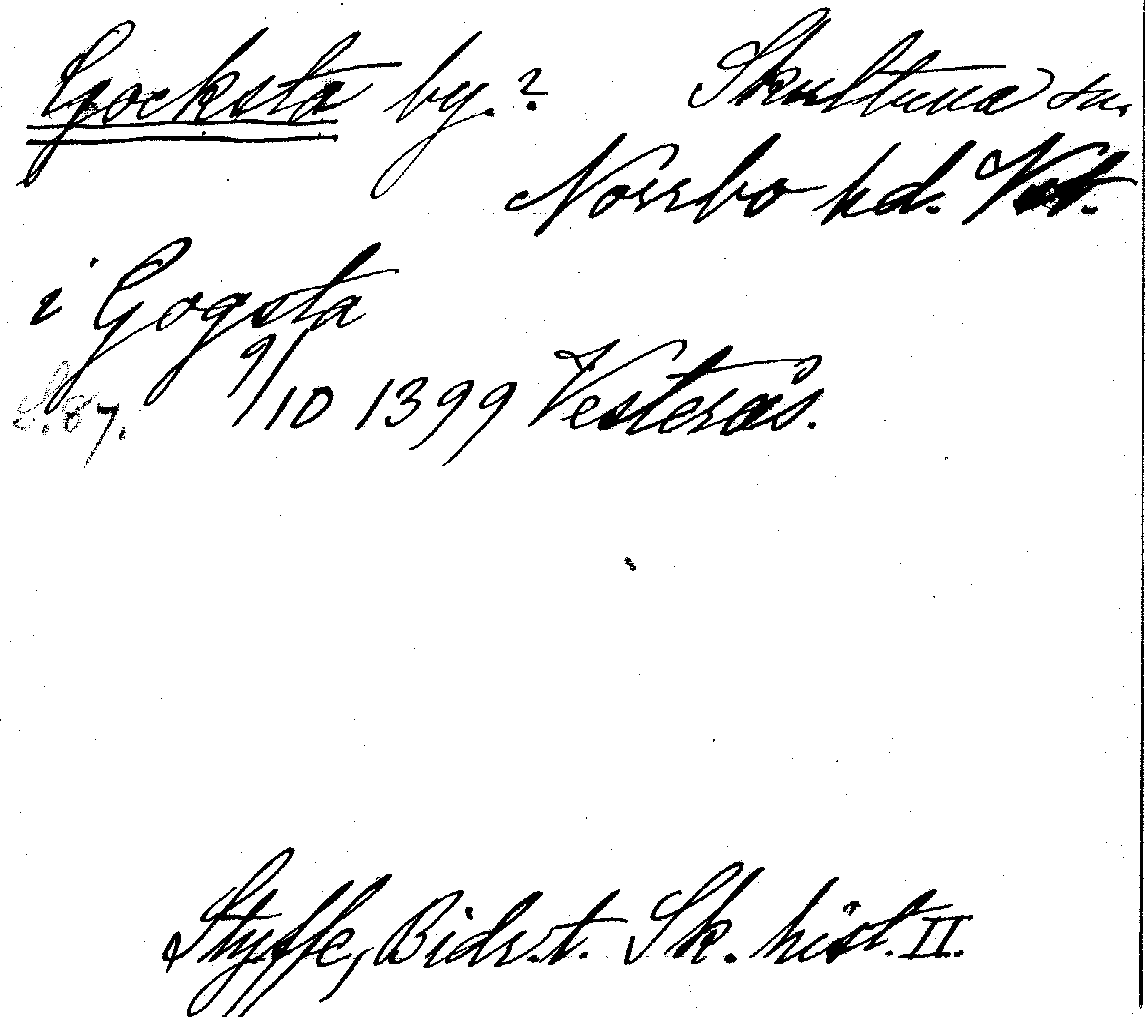 Gocksta by. ? Skultuna sn.
Norrbo hd. Vst.
i Gogsta
S. 87. 9/10 1399 Vesterås.
Styffe, Bidr. t. Sk. hist. II.